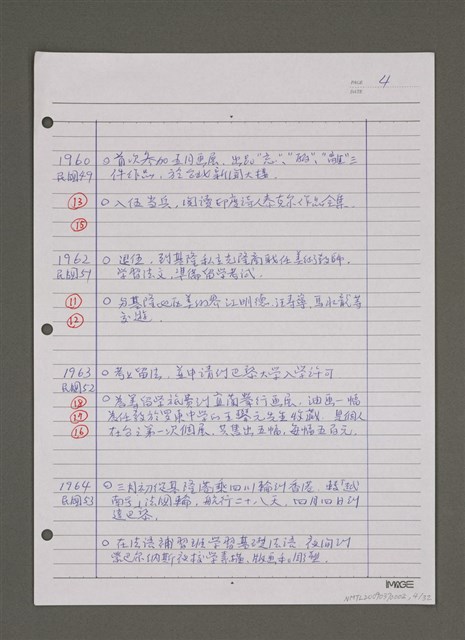 PAGE 4
DATE
1960 ○首次參加五月畫展，出品"忘"、"盼"、"離"三
民國49 件作品，於台北新聞大樓.
⑬ ○入伍當兵，閱讀印度詩人泰戈尔作品全集.
⑮
1962 ○退伍，到基隆私立光隆商職任美術教師.
民國51 学習法文，準備留学考試.
⑪ ○与基隆地區美術界江明德、汪壽寧、馬永龍等
⑫ 交遊.
1963 ○考上留法，並申請到巴黎大学入学許可
民國52
⑱ ○為籌留学旅費到宜蘭舉行画展，油画一幅
⑰ 為任教於羅東中学的王攀元先生收藏，是個人
⑯ 在台之第一次個展，共售出五幅，每幅五百元.
1964 ○三月初從基隆搭乘四川輪到香港，轉"越
民國53 南号"法國輪，航行二十八天，四月四日到
達巴黎.
○在法語補習班学習基礎法語，夜间到
蒙巴尔納斯夜校学素描，版画和周塑.
IMAGE